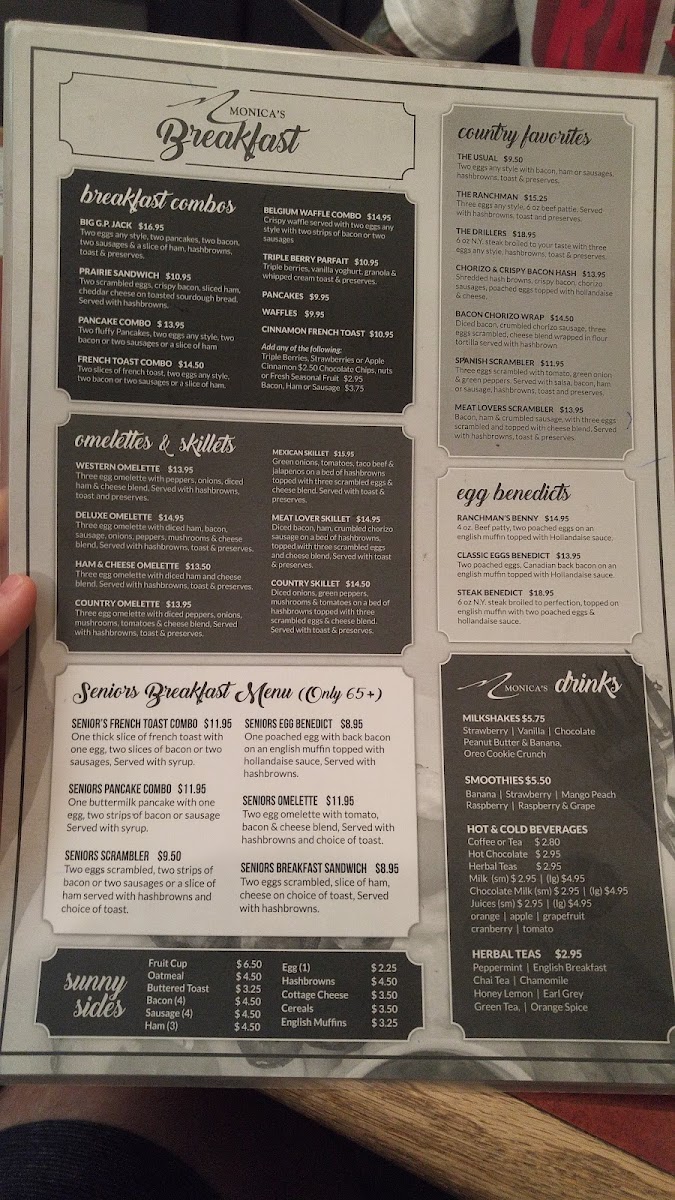 MONICA'S
Breakfast
breakfast combos
BIG G.P. JACK $16.95
Two eggs any style, two pancakes, two bacon,
two sausages & a slice of ham, hashbrowns,
toast & preserves.
PRAIRIE SANDWICH $10.95
Two scrambled eggs, crispy bacon, sliced ham,
cheddar cheese on toasted sourdough bread.
Served with hashbrowns.
PANCAKE COMBO $ 13.95
Two fluffy Pancakes, two eggs any style, two
bacon or two sausages or a slice of ham
FRENCH TOAST COMBO $14.50
Two slices of french toast, two eggs any style,
two bacon or two sausages or a slice of ham.
BELGIUM WAFFLE COMBO $14.95
Crispy waffle served with two eggs any
style with two strips of bacon or two
sausages
TRIPLE BERRY PARFAIT $10.95
Triple berries, vanilla yoghurt, granola &
whipped cream toast & preserves.
PANCAKES $9.95
WAFFLES $9.95
CINNAMON FRENCH TOAST $10.95
Add any of the following:
Triple Berries, Strawberries or Apple
Cinnamon $2.50 Chocolate Chips, nuts
or Fresh Seasonal Fruit $2.95
Bacon, Ham or Sausage $3.75
omelettes & skillets
WESTERN OMELETTE $13.95
Three egg omelette with peppers, onions, diced
ham & cheese blend. Served with hashbrowns,
toast and preserves.
DELUXE OMELETTE $14.95
Three egg omelette with diced ham, bacon,
sausage, onions, peppers, mushrooms & cheese
blend. Served with hashbrowns, toast & preserves.
HAM & CHEESE OMELETTE $13.50
Three egg omelette with diced ham and cheese
blend. Served with hashbrowns, toast & preserves.
COUNTRY OMELETTE $13.95
Three egg omelette with diced peppers, onions,
mushrooms, tomatoes & cheese blend, Served
with hashbrowns, toast & preserves.
MEXICAN SKILLET $15.95
Green onions, tomatoes, taco beef &
jalapenos on a bed of hashbrowns
topped with three scrambled eggs &
cheese blend. Served with toast &
preserves.
MEAT LOVER SKILLET $14.95
Diced bacon, ham, crumbled chorizo
sausage on a bed of hashbrowns,
topped with three scrambled eggs
and cheese blend, Served with toast
& preserves.
COUNTRY SKILLET $14.50
Diced onions, green peppers,
mushrooms & tomatoes on a bed of
hashbrowns topped with three
scrambled eggs & cheese blend.
Served with toast & preserves.
Seniors Breakfast Menu (Only 65+)
SENIOR'S FRENCH TOAST COMBO $11.95
One thick slice of french toast with
one egg, two slices of bacon or two
sausages, Served with syrup.
SENIORS PANCAKE COMBO $11.95
One buttermilk pancake with one
egg, two strips of bacon or sausage
Served with syrup.
SENIORS SCRAMBLER $9.50
Two eggs scrambled, two strips of
bacon or two sausages or a slice of
ham served with hashbrowns and
choice of toast.
SENIORS EGG BENEDICT $8.95
One poached egg with back bacon
on an english muffin topped with
hollandaise sauce, Served with
hashbrowns.
SENIORS OMELETTE $11.95
Two egg omelette with tomato,
bacon & cheese blend, Served with
hashbrowns and choice of toast.
SENIORS BREAKFAST SANDWICH $8.95
Two eggs scrambled, slice of ham,
cheese on choice of toast, Served
with hashbrowns.
sunny sides
Fruit Cup $ 6.50
Oatmeal $ 4.50
Buttered Toast $ 3.25
Bacon (4) $ 4.50
Sausage (4) $ 4.50
Ham (3) $ 4.50
Egg (1) $ 2.25
Hashbrowns $ 4.50
Cottage Cheese $ 3.50
Cereals $ 3.50
English Muffins $ 3.25
country favorites
THE USUAL $9.50
Two eggs any style with bacon, ham or sausages,
hashbrowns, toast & preserves.
THE RANCHMAN $15.25
Three eggs any style, 6 oz beef pattie, Served
with hashbrowns, toast and preserves.
THE DRILLERS $18.95
6 oz N.Y. steak broiled to your taste with three
eggs any style, hashbrowns, toast & preserves.
CHORIZO & CRISPY BACON HASH $13.95
Shredded hash browns, crispy bacon, chorizo
sausages, poached eggs topped with hollandaise
& cheese.
BACON CHORIZO WRAP $14.50
Diced bacon, crumbled chorizo sausage, three
eggs scrambled, cheese blend wrapped in flour
tortilla served with hashbrown
SPANISH SCRAMBLER $11.95
Three eggs scrambled with tomato, green onion
& green peppers. Served with salsa, bacon, ham
or sausage, hashbrowns, toast and preserves.
MEAT LOVERS SCRAMBLER $13.95
Bacon, ham & crumbled sausage, with three eggs
scrambled and topped with cheese blend, Served
with hashbrowns, toast & preserves.
egg benedicts
RANCHMAN'S BENNY $14.95
4 oz. Beef patty, two poached eggs on an
english muffin topped with Hollandaise sauce.
CLASSIC EGGS BENEDICT $13.95
Two poached eggs, Canadian back bacon on an
english muffin topped with Hollandaise sauce.
STEAK BENEDICT $18.95
6 oz N.Y. steak broiled to perfection, topped on
english muffin with two poached eggs &
hollandaise sauce.
MONICA'S drinks
MILKSHAKES $5.75
Strawberry | Vanilla | Chocolate
Peanut Butter & Banana,
Oreo Cookie Crunch
SMOOTHIES $5.50
Banana | Strawberry | Mango Peach
Raspberry | Raspberry & Grape
HOT & COLD BEVERAGES
Coffee or Tea $ 2.80
Hot Chocolate $ 2.95
Herbal Teas $ 2.95
Milk (sm) $ 2.95 | (lg) $4.95
Chocolate Milk (sm) $ 2.95 | (lg) $4.95
Juices (sm) $ 2.95 | (lg) $4.95
orange | apple | grapefruit
cranberry | tomato
HERBAL TEAS $2.95
Peppermint | English Breakfast
Chai Tea | Chamomile
Honey Lemon | Earl Grey
Green Tea, | Orange Spice